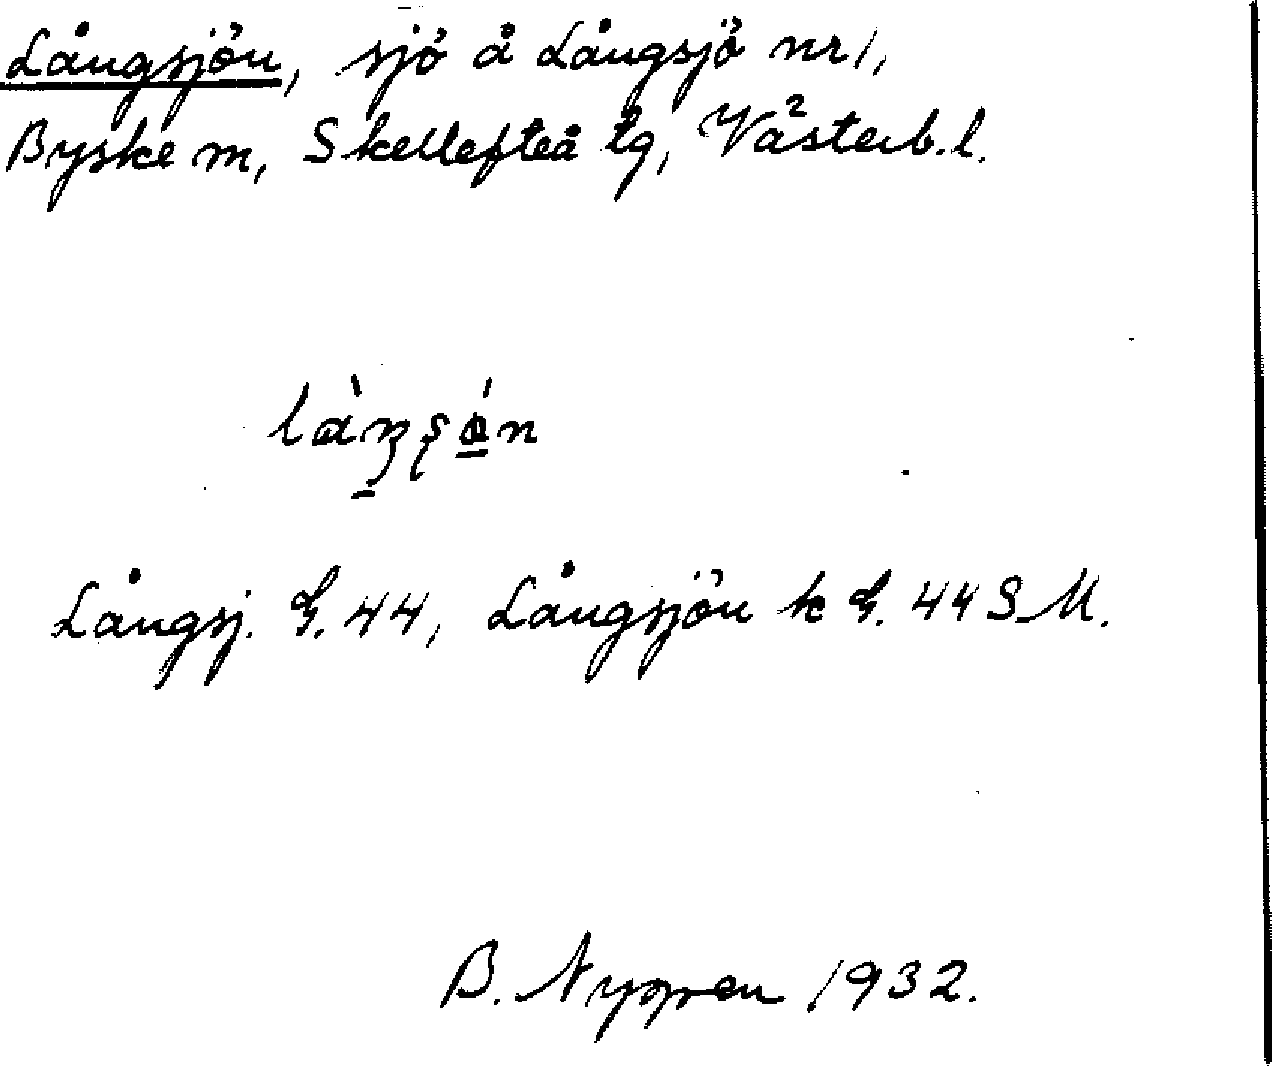 Långsjön, sjö å Långsjö nr 1,
Byske m, Skellefteå tg, Västerb. l.
làŋʂón
Långsj. G. 44, Långsjön k G. 44 S M.
B. Nygren 1932.